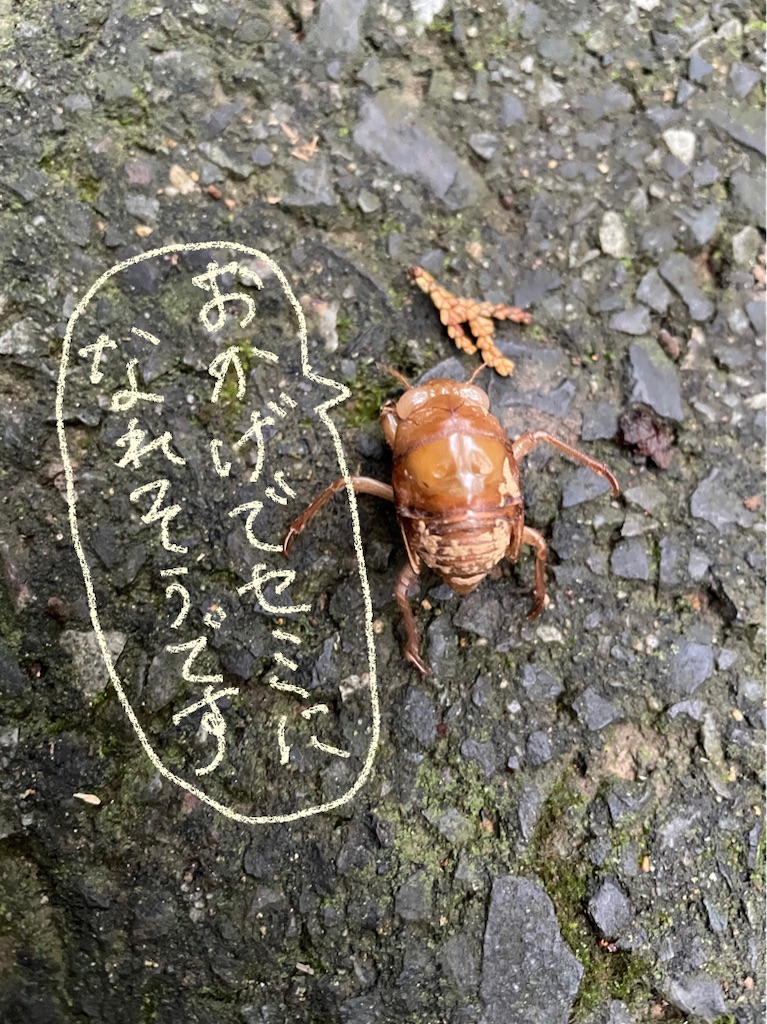 おかげでセミに
なれそうです